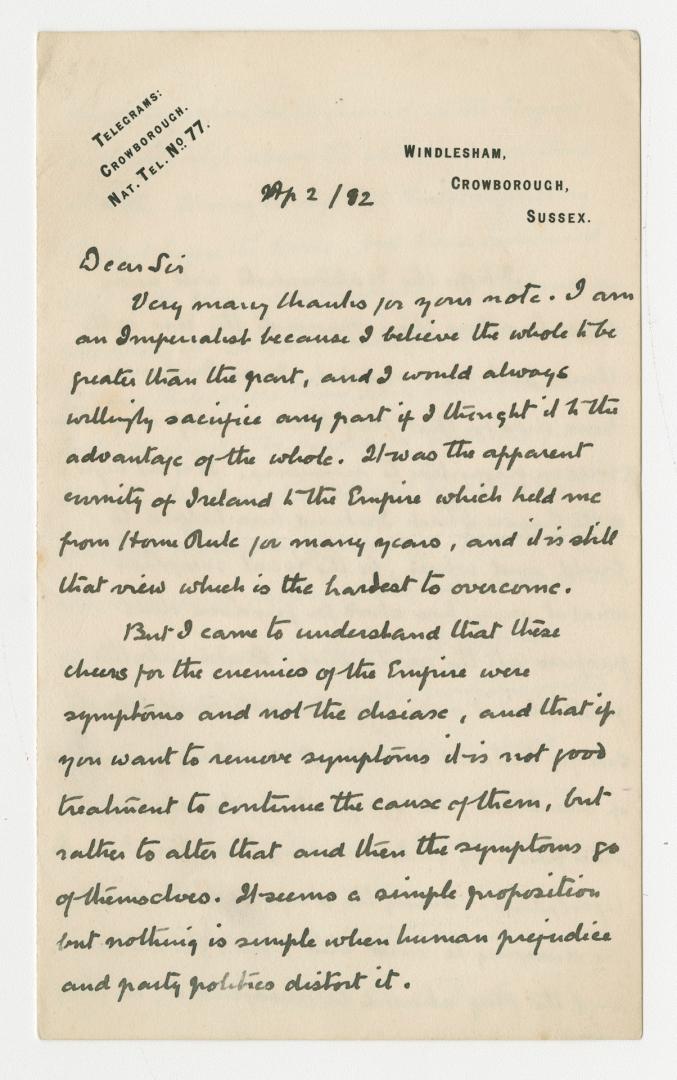 TELEGRAMS:
CROWBOROUGH.
NAT. TEL. No. 77.
WINDLESHAM,
CROWBOROUGH,
SUSSEX.
Ap 2 / 92
Dear Sir
Very many thanks for your note. I am
an Imperialist because I believe the whole to be
greater than the part, and I would always
willingly sacrifice any part if I thought it to the
advantage of the whole. It was the apparent
enmity of Ireland to the Empire which held me
from Home Rule for many years, and it is still
that view which is the hardest to overcome.
But I came to understand that these
cheers for the enemies of the Empire were
symptoms and not the disease, and that if
you want to remove symptoms it is not good
treatment to continue the cause of them, but
rather to alter that and then the symptoms go
of themselves. It seems a simple proposition
but nothing is simple when human prejudice
and party politics distort it.